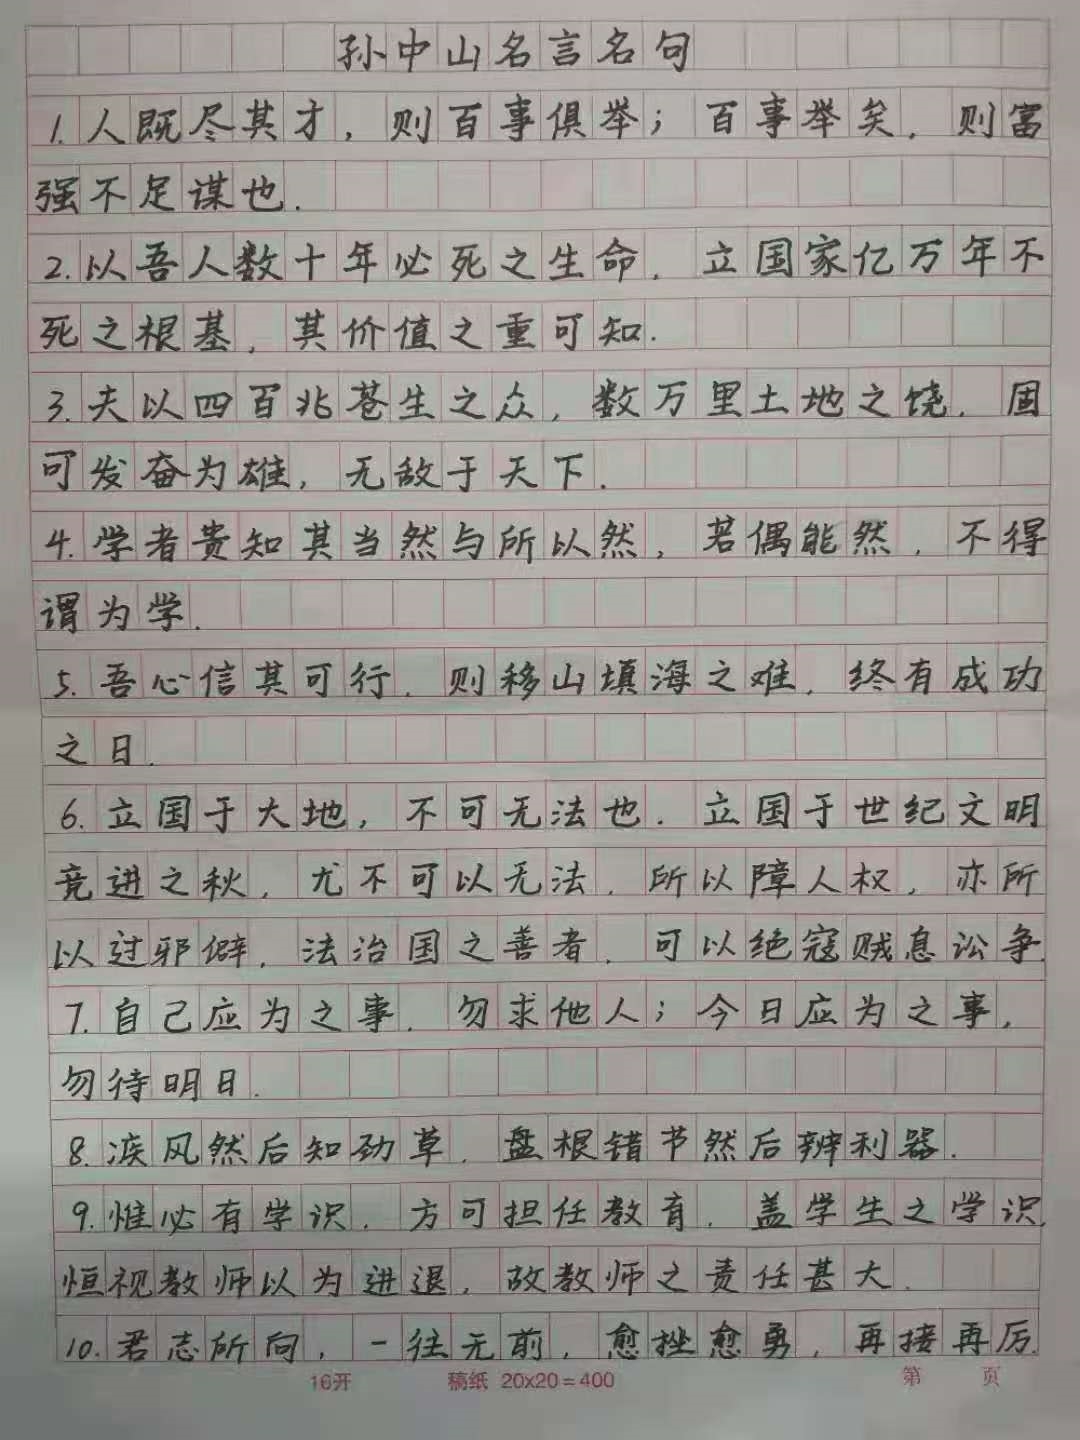 孙中山名言名句
1.人既尽其才,则百事俱举;百事举矣,则富
强不足谋也.
2.以吾人数十年必死之生命,立国家亿万年不
死之根基,其价值之重可知.
3.夫以四百兆苍生之众,数万里土地之饶,国
可发奋为雄,无敌于天下.
4.学者贵知其当然与所以然,若偶能然,不得
谓为学.
5.吾心信其可行,则移山填海之难,终有成功
之日.
6.立国于大地,不可无法也.立国于世纪文明
竞进之秋,尤不可以无法,所以障人权,亦所
以过邪僻,法治国之善者,可以绝寇贼息讼争.
7.自己应为之事,勿求他人;今日应为之事,
勿待明日.
8.疾风然后知劲草,盘根错节然后辨利器.
9.惟必有学识,方可担任教育,盖学生之学识,
恒视教师以为进退,故教师之责任甚大.
10.君志所向,一往无前,愈挫愈勇,再接再厉.
16开 稿纸 20x20=400 第 页